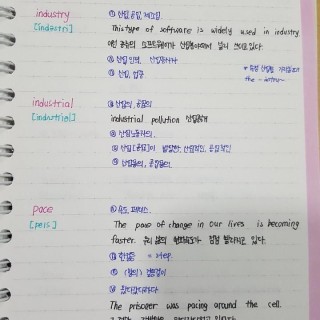 industry ① 산업, 공업, 제조업
[indəstri] This type of software is widely used in industry
이런 종류의 소프트웨어가 산업분야에서 널리 쓰이고 있다.
② 산업
③ 산업, 업종
the ~ industry
industrial ① 산업의, 공업의
[indʌ́striəl] industrial pollution 산업공해
② 산업노동자의
③ 산업[공업]이 발달한, 산업적인, 공업적인
④ 산업용의, 공업용의
pace ① 속도, 페이스
[peis] The pace of change in our lives is becoming
faster. 우리 삶의 변화속도가 점점 빨라지고 있다.
② 한걸음 = step
③ (말의) 걸음걸이
④ 왔다갔다하다
The prisoner was pacing around the cell.